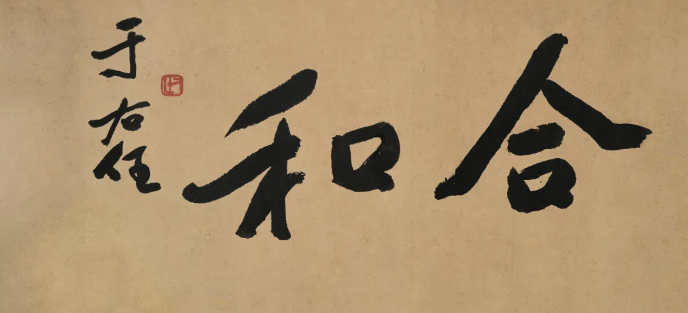 合和
于右任